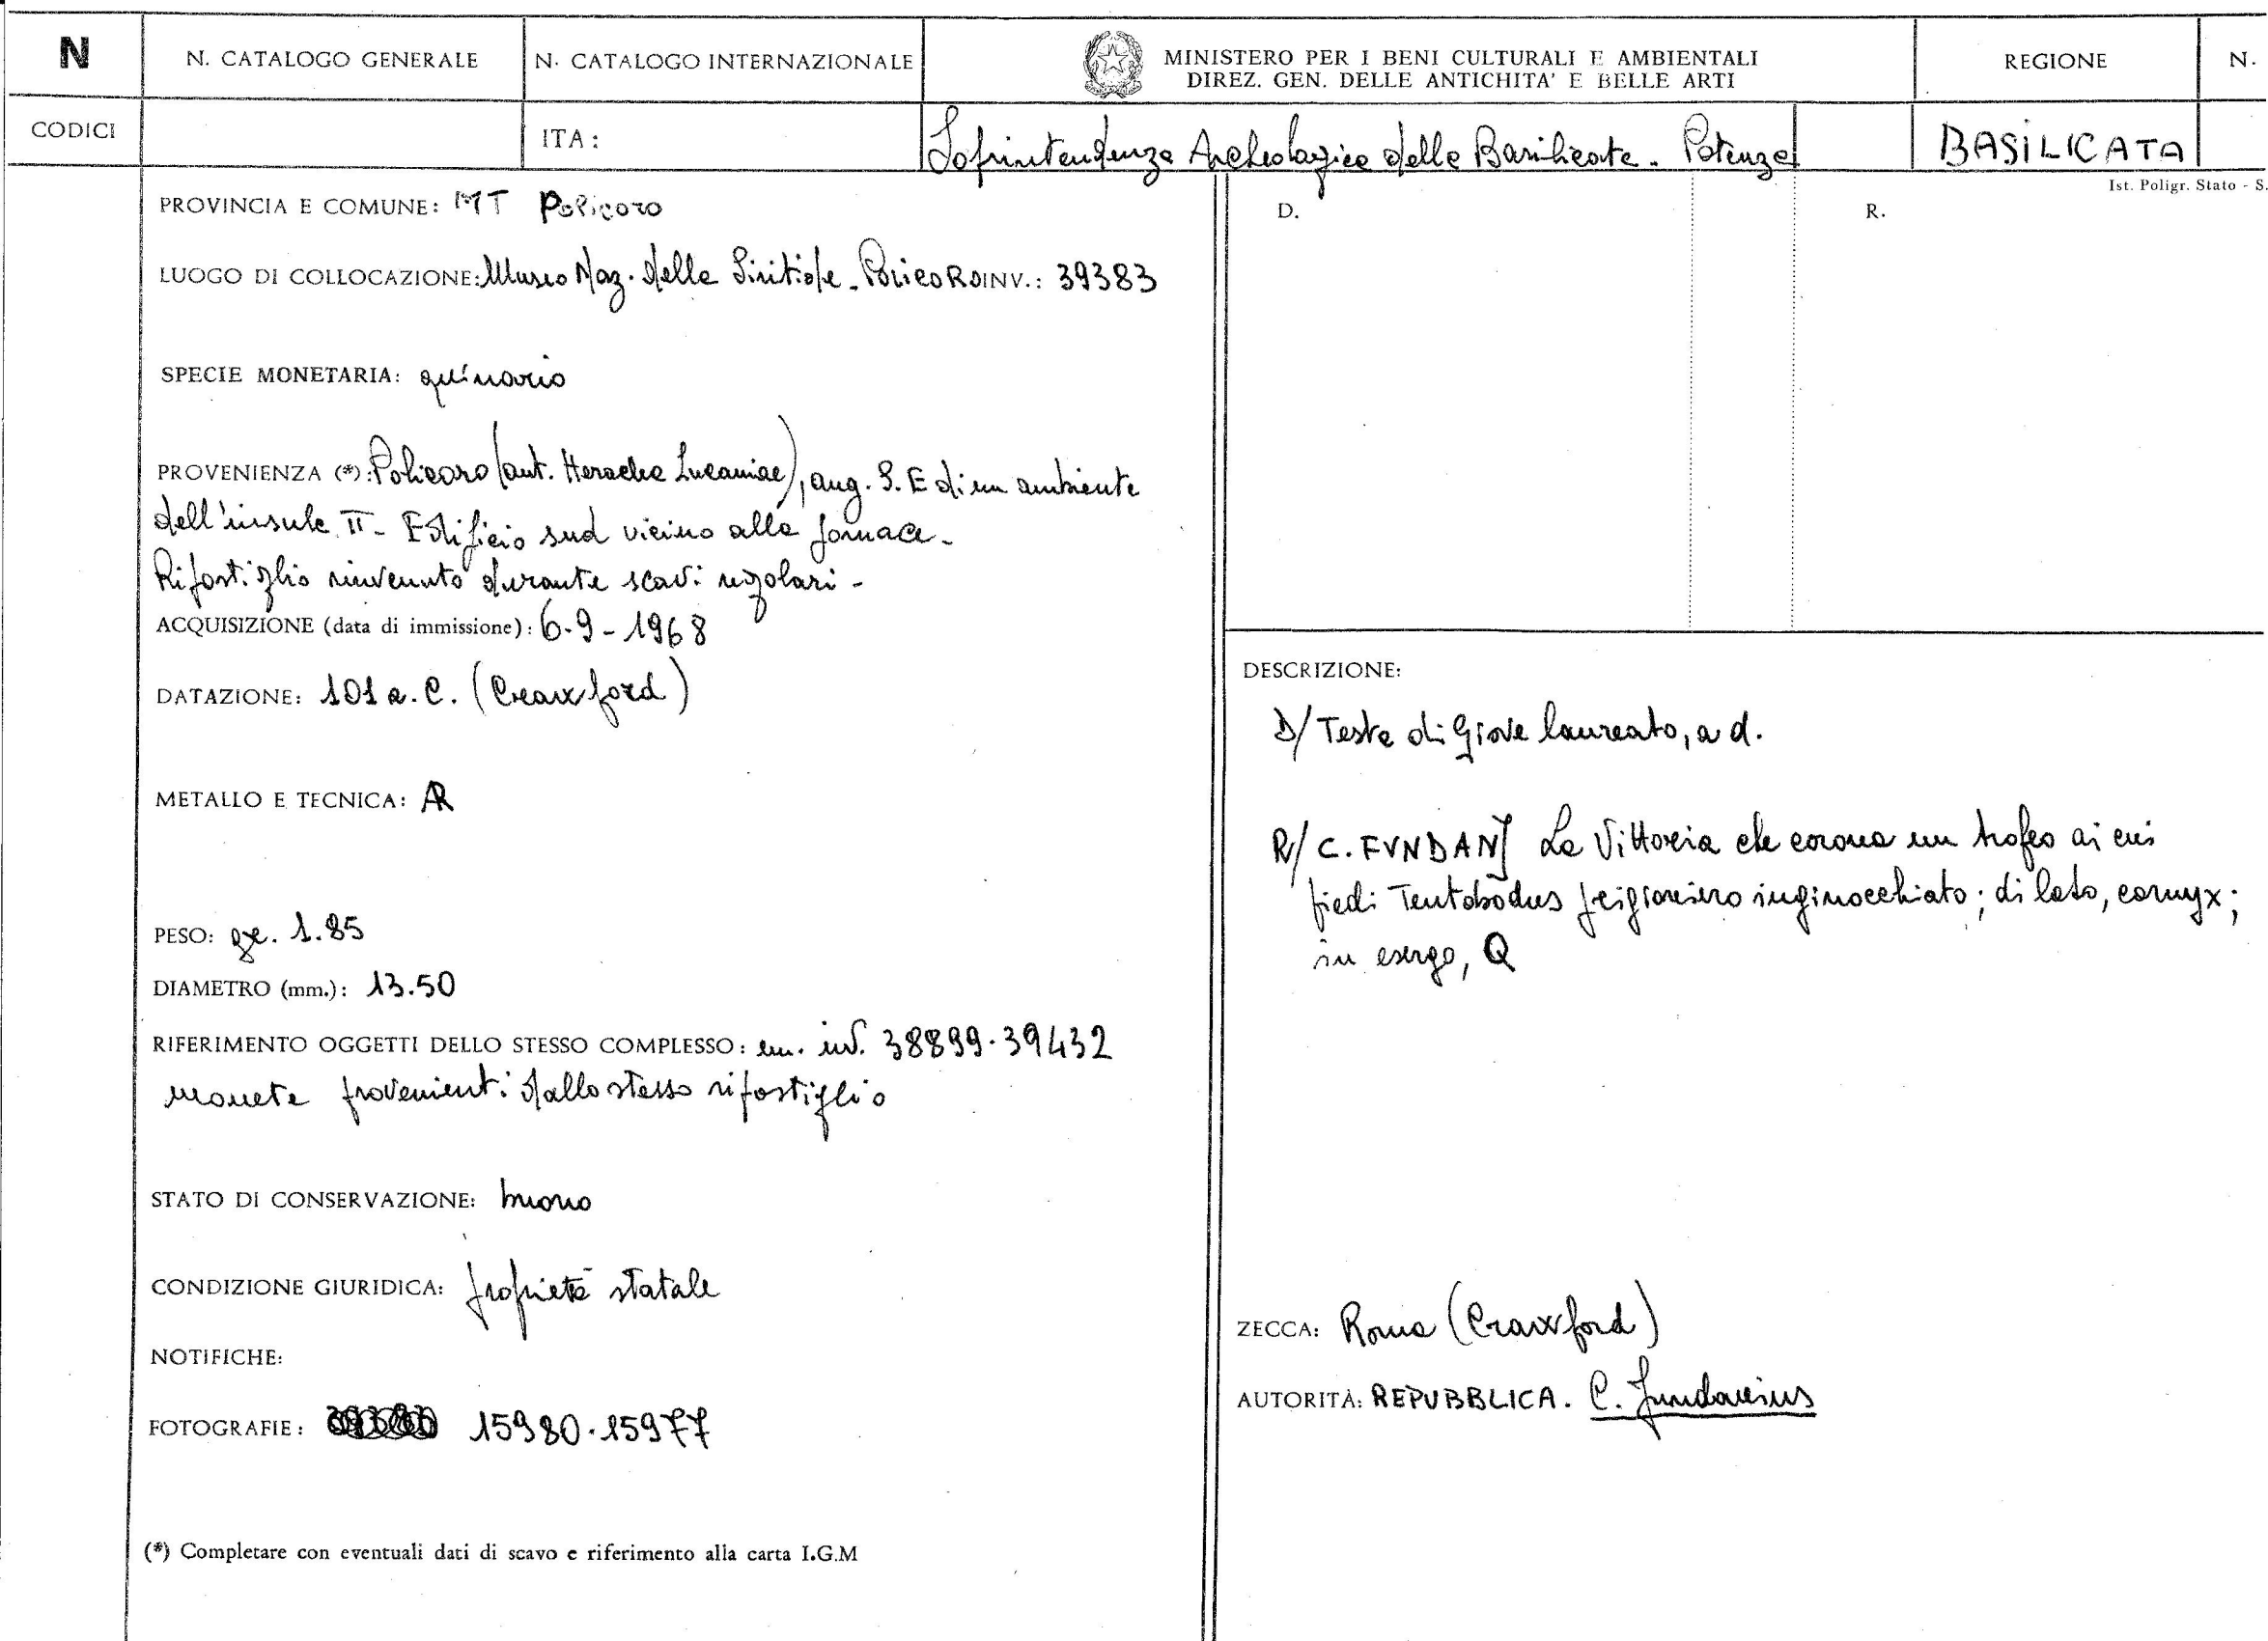 N
N. CATALOGO GENERALE
N. CATALOGO INTERNAZIONALE
MINISTERO PER I BENI CULTURALI E AMBIENTALI
DIREZ. GEN. DELLE ANTICHITA' E BELLE ARTI
REGIONE
N.
CODICI
ITA:
Soprintendenza Archeologica della Basilicata - Potenza
BASILICATA
Ist. Poligr. Stato - S.
PROVINCIA E COMUNE: MT Policoro
LUOGO DI COLLOCAZIONE: Museo Naz. della Siritide - Policoro INV.: 39383
SPECIE MONETARIA: quinario
PROVENIENZA (*): Policoro (ant. Heraclea Lucaniae), ang. S.E di un ambiente
dell'insula II - Edificio sud vicino alla fornace -
Ripostiglio rinvenuto durante scavi regolari -
ACQUISIZIONE (data di immissione): 6-9-1968
DATAZIONE: 101 a.C. (Crawford)
METALLO E TECNICA: AR
PESO: gr. 1.85
DIAMETRO (mm.): 13.50
RIFERIMENTO OGGETTI DELLO STESSO COMPLESSO: nn. inv. 38899-39432
monete provenienti dallo stesso ripostiglio
STATO DI CONSERVAZIONE: buono
CONDIZIONE GIURIDICA: proprietà statale
NOTIFICHE:
FOTOGRAFIE: 15980-15977
(*) Completare con eventuali dati di scavo e riferimento alla carta I.G.M
D.
R.
DESCRIZIONE:
D/ Testa di Giove laureato, a d.
R/ C. FVNDAN] La Vittoria che corona un trofeo ai cui
piedi Teutobodus prigioniero inginocchiato; di lato, carnyx;
in esergo, Q
ZECCA: Roma (Crawford)
AUTORITÀ: REPUBBLICA. C. Fundanius